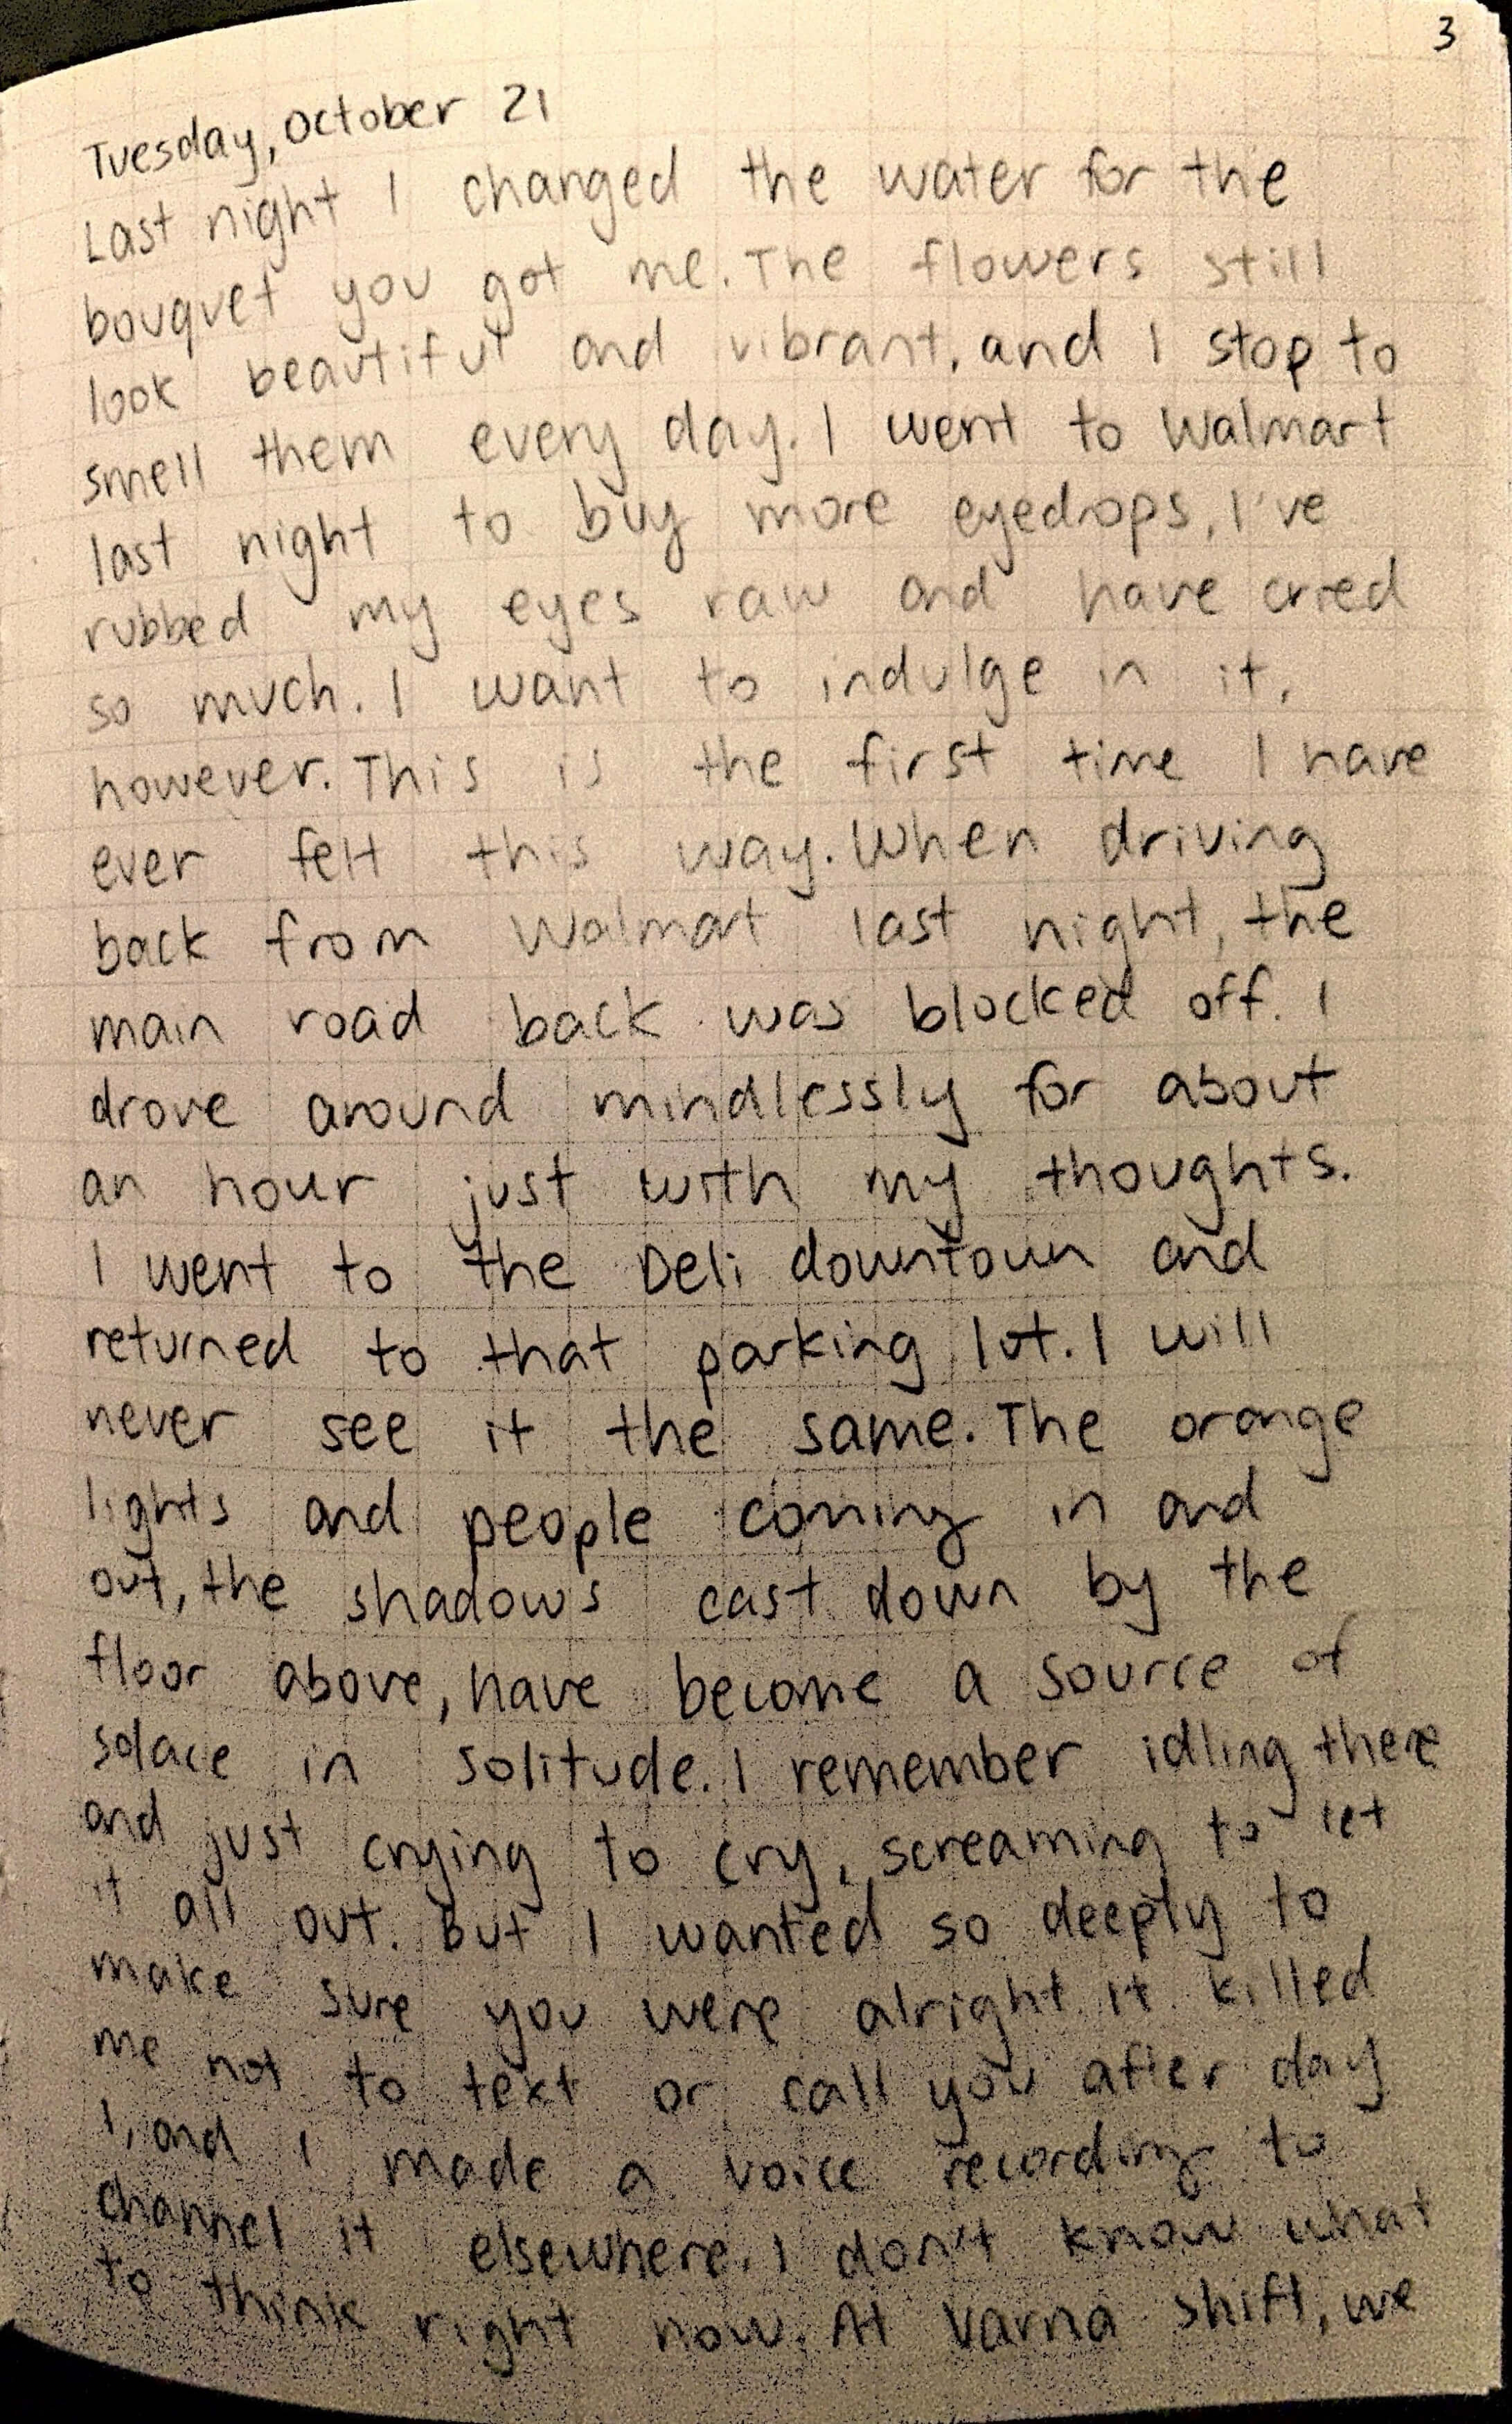 3
Tuesday, October 21
Last night I changed the water for the
bouquet you got me. The flowers still
look beautiful and vibrant, and I stop to
smell them every day. I went to Walmart
last night to buy more eyedrops, I've
rubbed my eyes raw and have cried
so much. I want to indulge in it,
however. This is the first time I have
ever felt this way. When driving
back from Walmart last night, the
main road back was blocked off. I
drove around mindlessly for about
an hour just with my thoughts.
I went to the Deli downtown and
returned to that parking lot. I will
never see it the same. The orange
lights and people coming in and
out, the shadows cast down by the
floor above, have become a source of
solace in solitude. I remember idling there
and just crying to cry, screaming to let
it all out. But I wanted so deeply to
make sure you were alright. It killed
me not to text or call you after day
1, and I made a voice recording to
channel it elsewhere. I don't know what
to think right now. At Varna shift, we